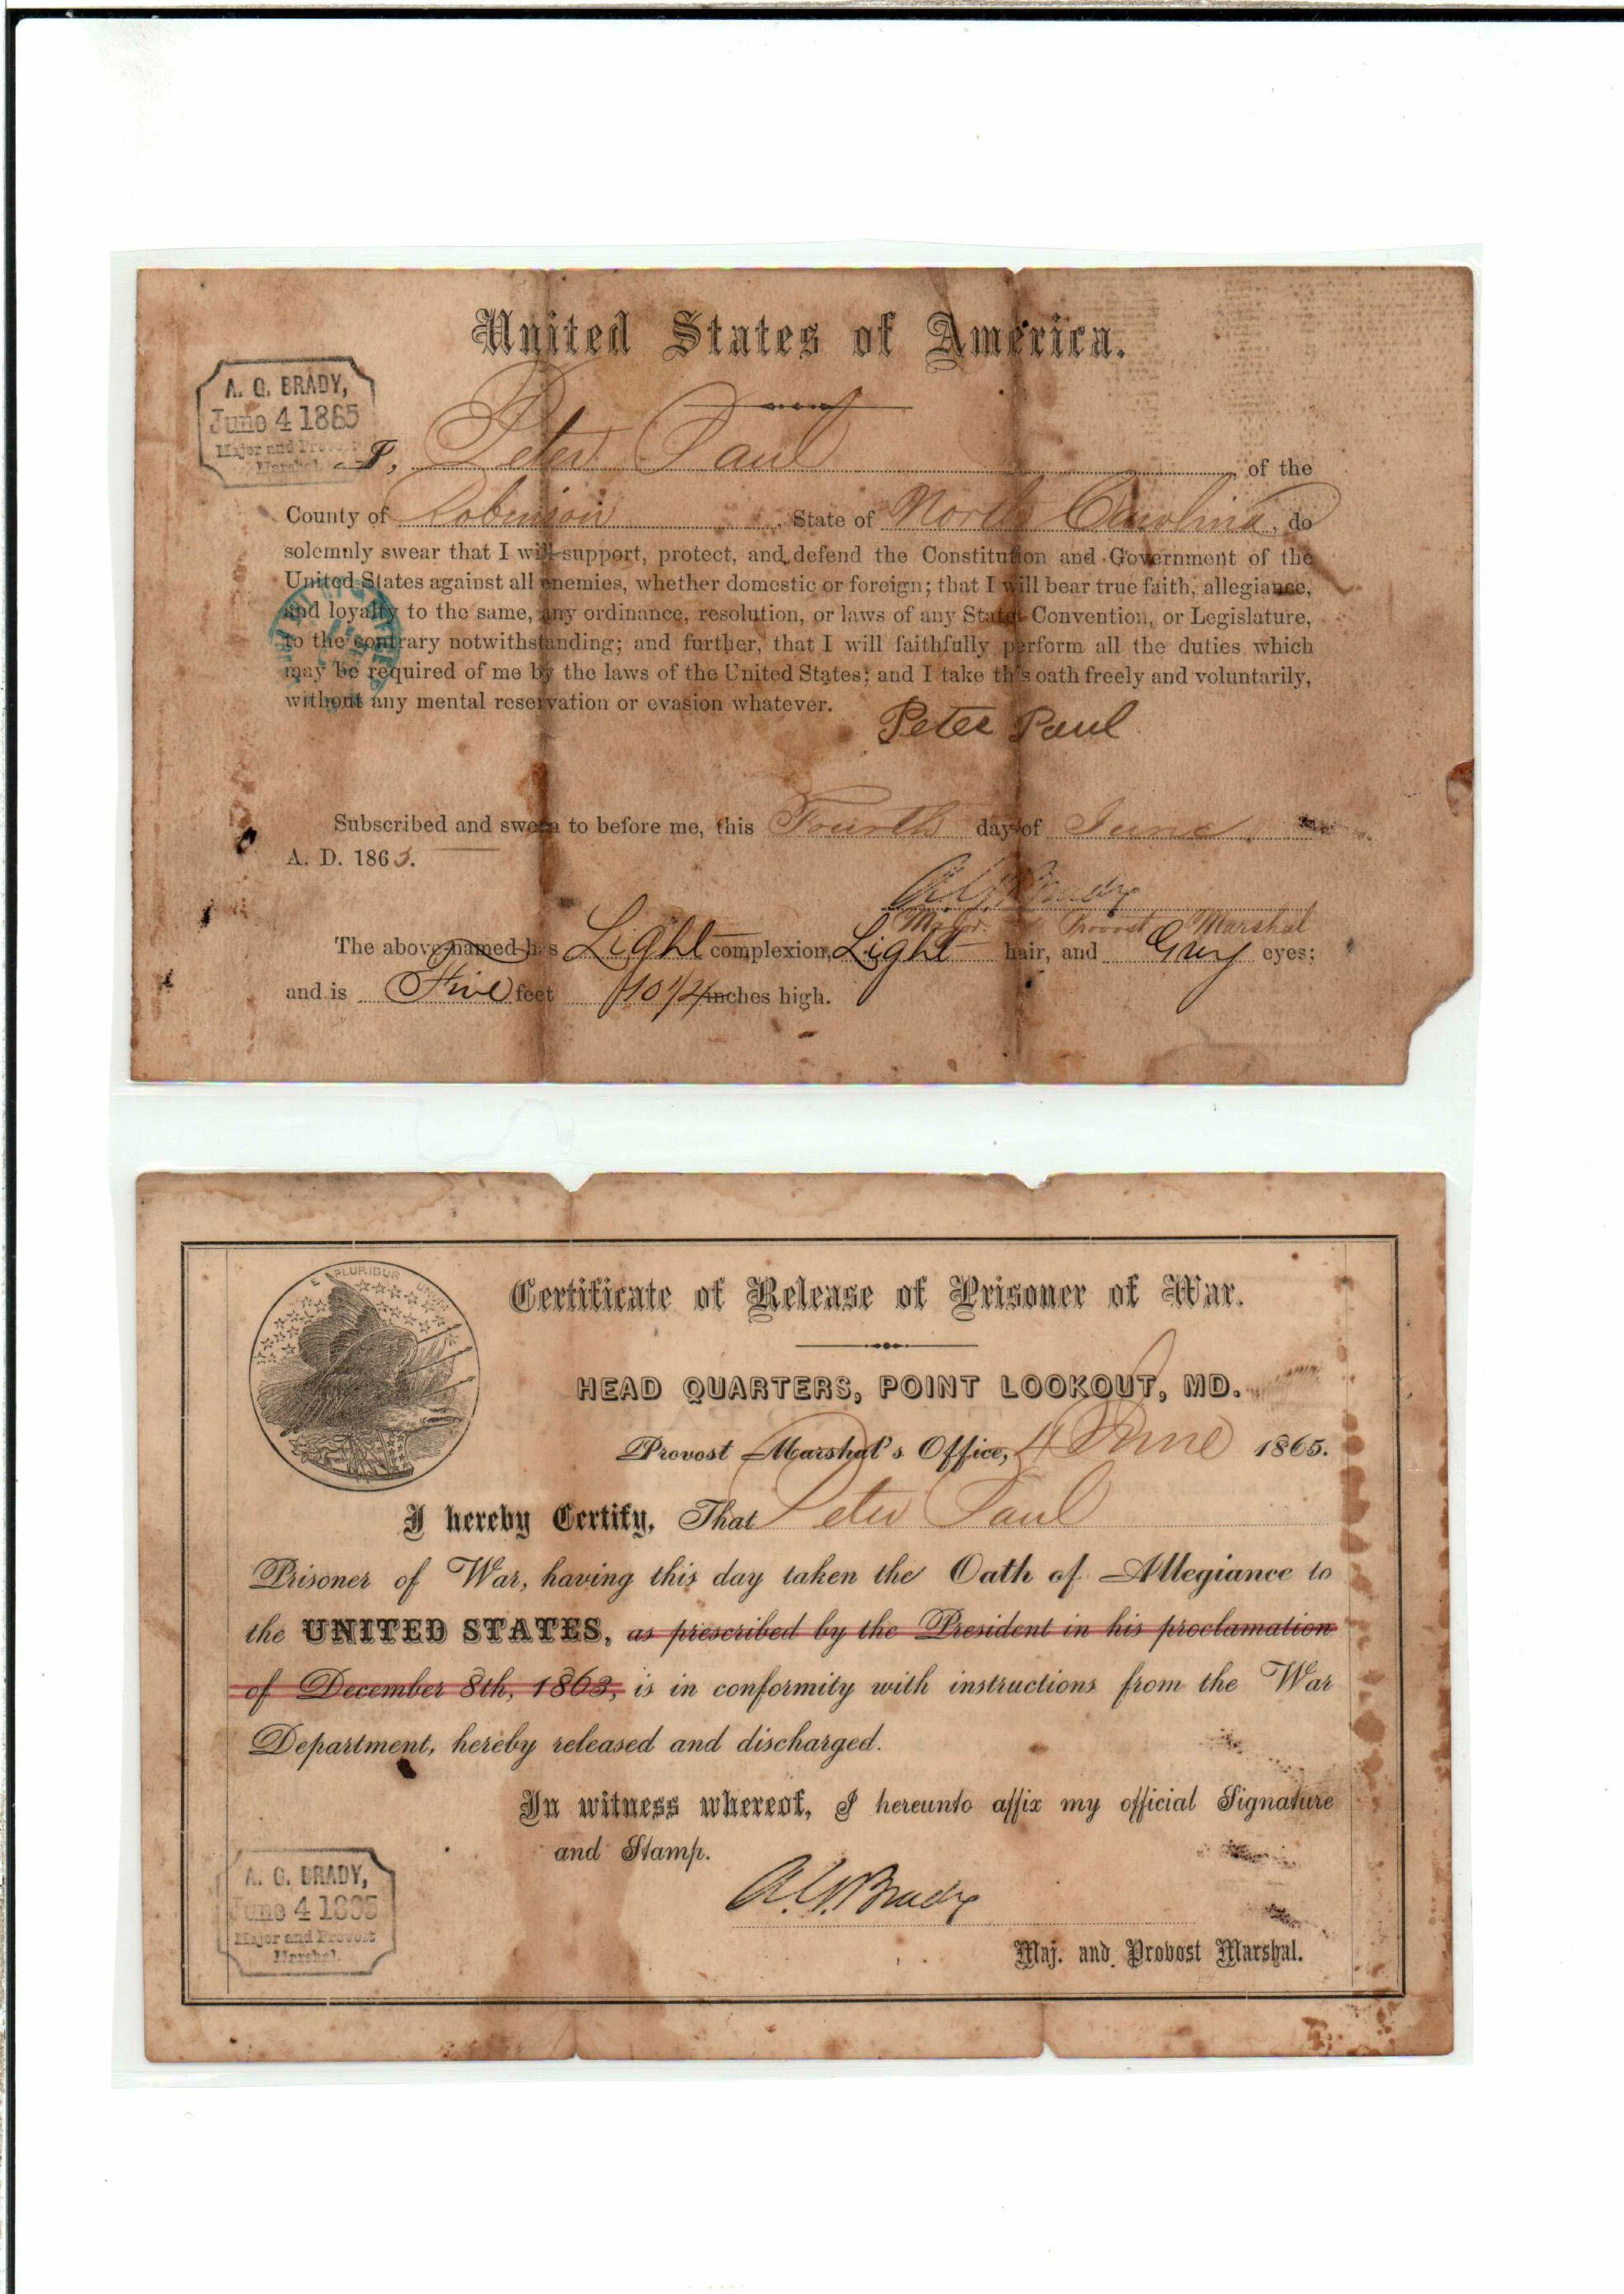 United States of America.
A. G. BRADY,
June 4 1865
Major and Provost
Marshal.
I, Peter Paul of the
County of Robinson, State of North Carolina, do
solemnly swear that I will support, protect, and defend the Constitution and Government of the
United States against all enemies, whether domestic or foreign; that I will bear true faith, allegiance,
and loyalty to the same, any ordinance, resolution, or laws of any State, Convention, or Legislature,
to the contrary notwithstanding; and further, that I will faithfully perform all the duties which
may be required of me by the laws of the United States; and I take this oath freely and voluntarily,
without any mental reservation or evasion whatever.
Peter Paul
Subscribed and sworn to before me, this Fourth day of June
A. D. 1865.
A. G. Brady
Major Provost Marshal
The above named has Light complexion, Light hair, and Grey eyes;
and is Five feet 10 1/2 inches high.
E PLURIBUS UNUM
Certificate of Release of Prisoner of War.
HEAD QUARTERS, POINT LOOKOUT, MD.
Provost Marshal's Office, 4 June 1865.
I hereby Certify, That Peter Paul
Prisoner of War, having this day taken the Oath of Allegiance to
the UNITED STATES, as prescribed by the President in his proclamation
of December 8th, 1863, is in conformity with instructions from the War
Department, hereby released and discharged.
In witness whereof, I hereunto affix my official Signature
and Stamp.
A. G. BRADY,
June 4 1865
Major and Provost
Marshal.
A. G. Brady
Maj. and Provost Marshal.